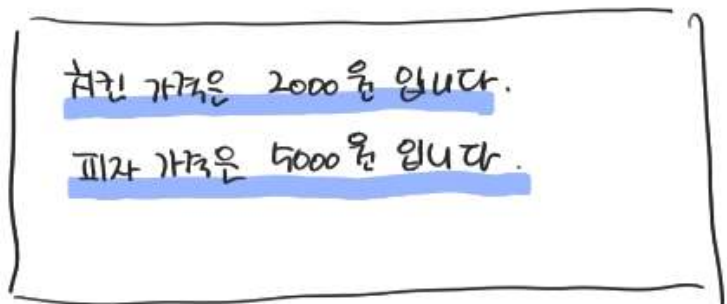 치킨 가격은 2000원 입니다.
피자 가격은 5000원 입니다.